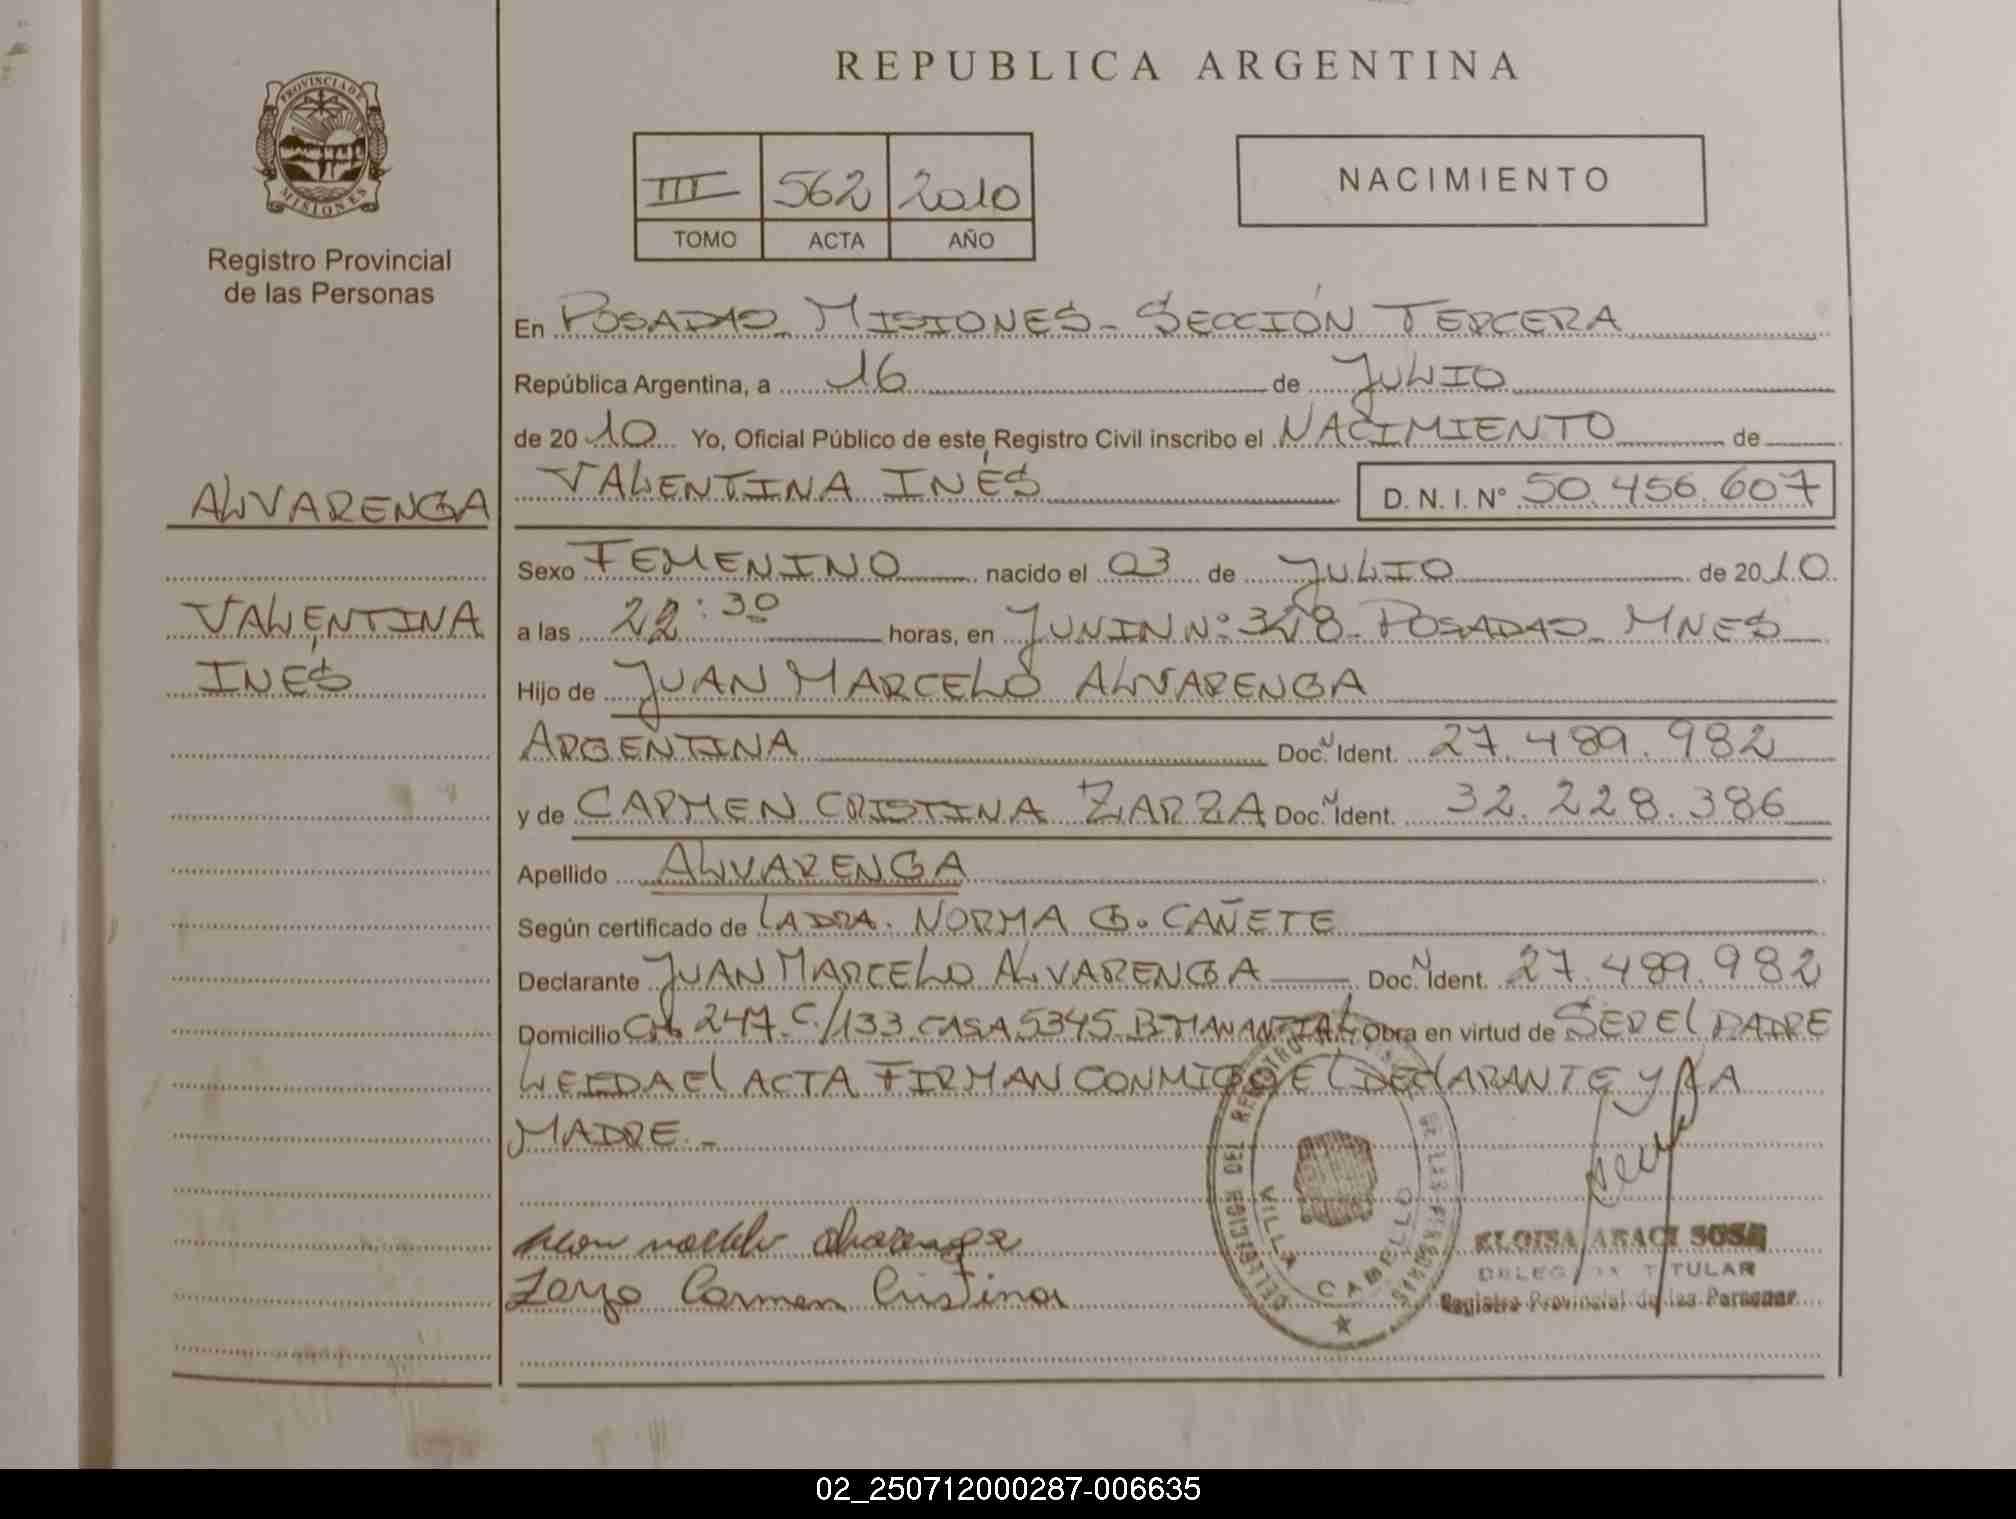 REPUBLICA ARGENTINA
PROVINCIA DE
MISIONES
Registro Provincial
de las Personas
III 562 2010
TOMO ACTA AÑO
NACIMIENTO
En POSADAS MISIONES - SECCIÓN TERCERA
República Argentina, a 16 de JULIO
de 2010 Yo, Oficial Público de este Registro Civil inscribo el NACIMIENTO de
ALVARENGA
VALENTINA INÉS D. N. I. N° 50.456.607
Sexo FEMENINO nacido el 03 de JULIO de 2010
VALENTINA
a las 22:30 horas, en JUNIN N° POSADAS MNES
INÉS
Hijo de JUAN MARCELO ALVARENGA
ARGENTINA Doc. Ident. 27.489.982
y de CARMEN CRISTINA ZARZA Doc. Ident. 32.228.386
Apellido ALVARENGA
Según certificado de LA DRA. NORMA G. CAÑETE
Declarante JUAN MARCELO ALVARENGA Doc. Ident. 27.489.982
Domicilio CH 247 C/133 CASA 5345 Bº MANANTIAL Obra en virtud de SER EL PADRE
LEIDA EL ACTA FIRMAN CONMIGO EL DECLARANTE Y LA
MADRE.-
Zarza Carmen Cristina
DELEGACION DEL REGISTRO DE LAS PERSONAS
VILLA CABELLO
ELOISA ARACI SOSA
DELEGADA TITULAR
Registro Provincial de las Personas
02_250712000287-006635